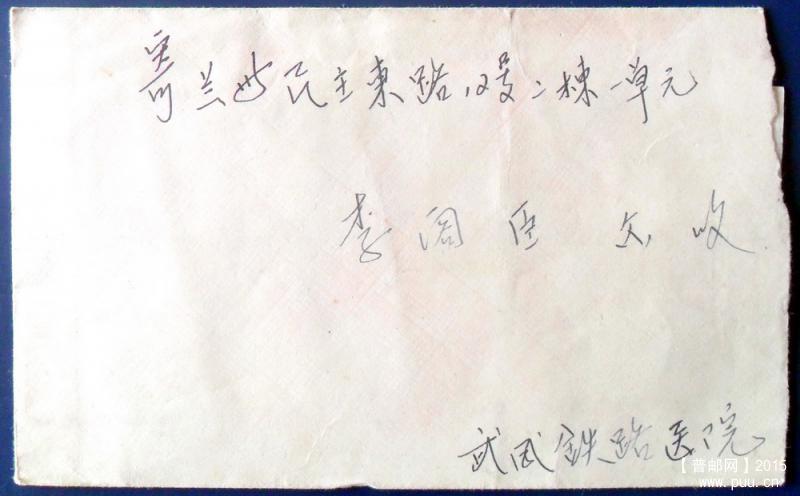 寄兰州民主東路12号二棟一单元
李阁臣 文收
武威铁路医院
【普邮网】2015
www.puu.cn